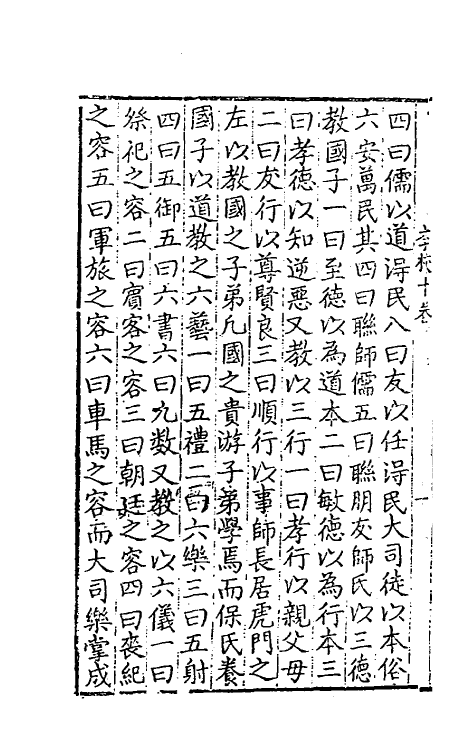 四曰儒以道淂民八曰友以任淂民大司徒以本俗
六安萬民其四曰聯師儒五曰聯朋友師氏以三德
教國子一曰至德以為道本二曰敏德以為行本三
曰孝德以知逆惡又教以三行一曰孝行以親父母
二曰友行以尊賢良三曰順行以事師長居虎門之
左以教國之子弟凡國之貴游子弟學焉而保氏養
國子以道教之六藝一曰五禮二曰六樂三曰五射
四曰五御五曰六書六曰九数又教之以六儀一曰
祭祀之容二曰賓客之容三曰朝廷之容四曰喪紀
之容五曰軍旅之容六曰車馬之容而大司樂掌成